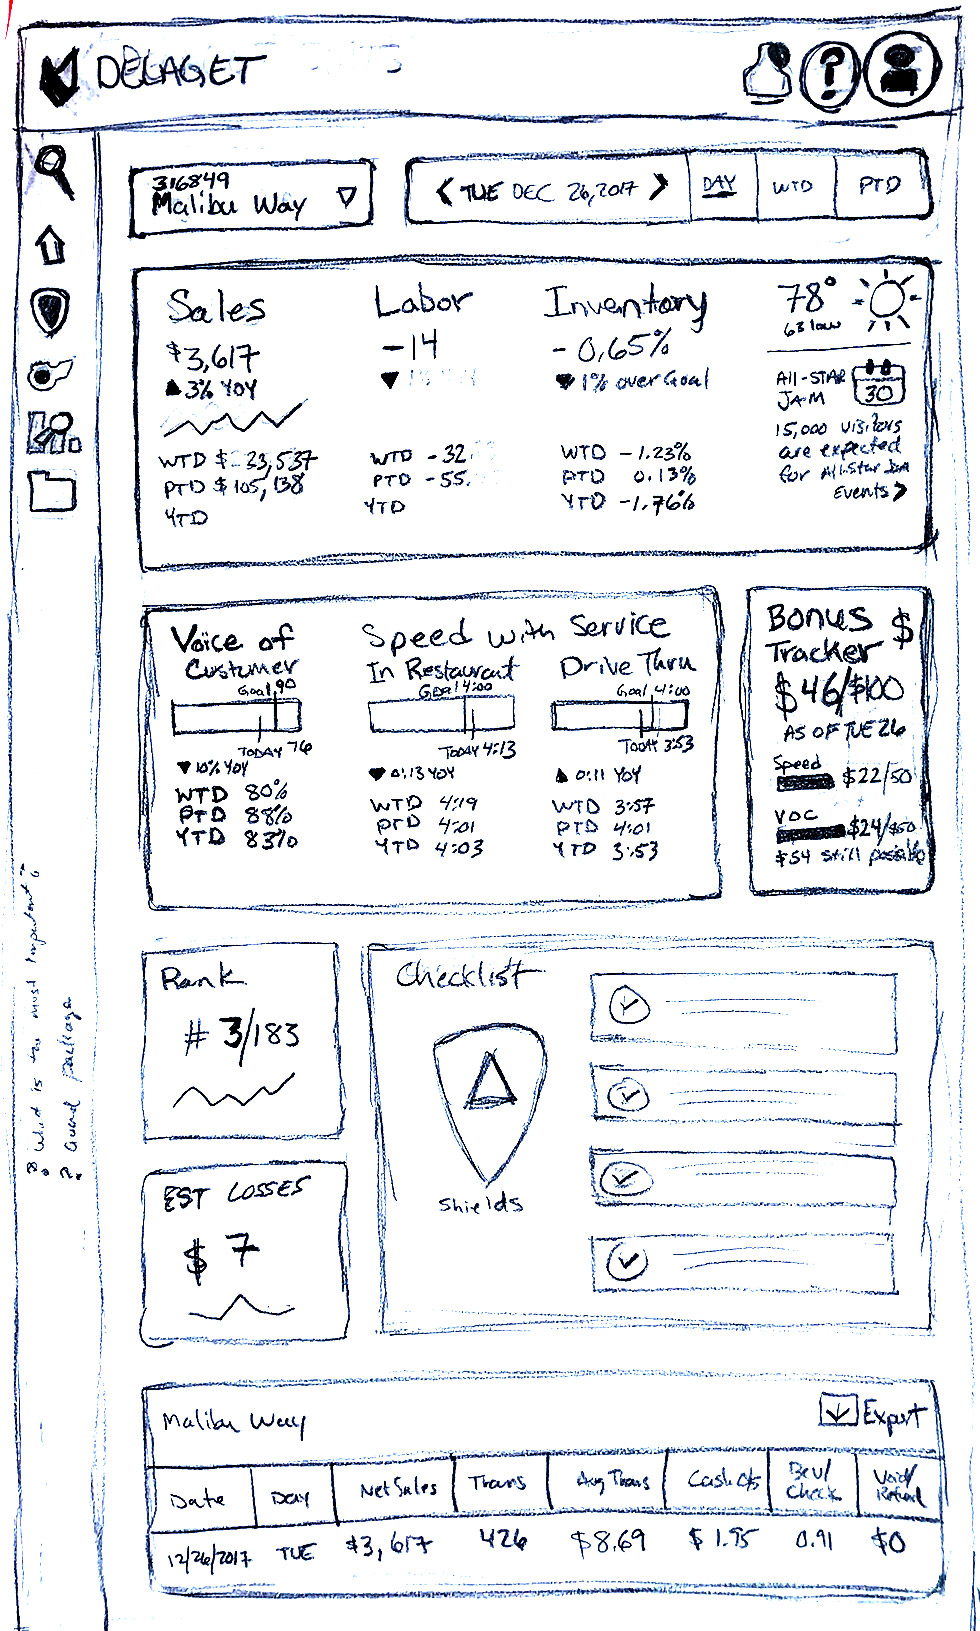 DELAGET
?
316849
Malibu Way
< TUE DEC 26, 2017 >
DAY
WTD
PTD
Sales
$3,617
▲ 3% YOY
WTD $ 23,537
PTD $ 105,138
YTD
Labor
-14
▼
WTD -32
PTD -55.
YTD
Inventory
- 0.65%
▼ 1% over Goal
WTD -1.23%
PTD 0.13%
YTD -1.76%
78°
63 low
All-STAR
JAM
30
15,000 visitors
are expected
for All-Star Jam
Events >
Voice of
Customer
Goal 90
TODAY 76
▼ 10% YOY
WTD 80%
PTD 88%
YTD 83%
Speed with Service
In Restaurant
Goal 4:00
TODAY 4:13
▼ 0:13 YOY
WTD 4:19
PTD 4:01
YTD 4:03
Drive Thru
Goal 4:00
TODAY 3:53
▲ 0:11 YOY
WTD 3:57
PTD 4:01
YTD 3:53
Bonus $
Tracker
$46/$100
AS OF TUE 26
Speed
$22/50
VOC
$24/$50
$54 still possible
Rank
# 3/183
EST LOSSES
$ 7
Checklist
Shields
What is the most important?
Guard package
Malibu Way
Export
Date Day Net Sales Trans Avg Trans Cash O/S Bev/ Void/
Check Refund
12/26/2017 TUE $3,617 426 $8.69 $1.95 0.91 $0